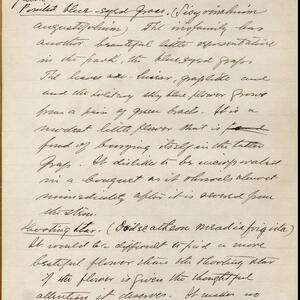 Pointed blue-eyed Grass, (Sisyrinchium
angustifolium) The iris family has
another beautiful little representative
in the park, the blue-eyed grass.
The leaves are linear, grasslike and
and the solitary sky blue flower grows
from a pair of green bracts. It is a
modest little flower that is
fond of burying itself in the taller
grass. It dislikes to be
in a bouquet as it shrivels almost
immediately after it is severed from
the stem.
Shooting Star. (
It would be difficult to find a more
beautiful flower than the shooting star
if the flower is given the thoughtful
attention it deserves. It makes no